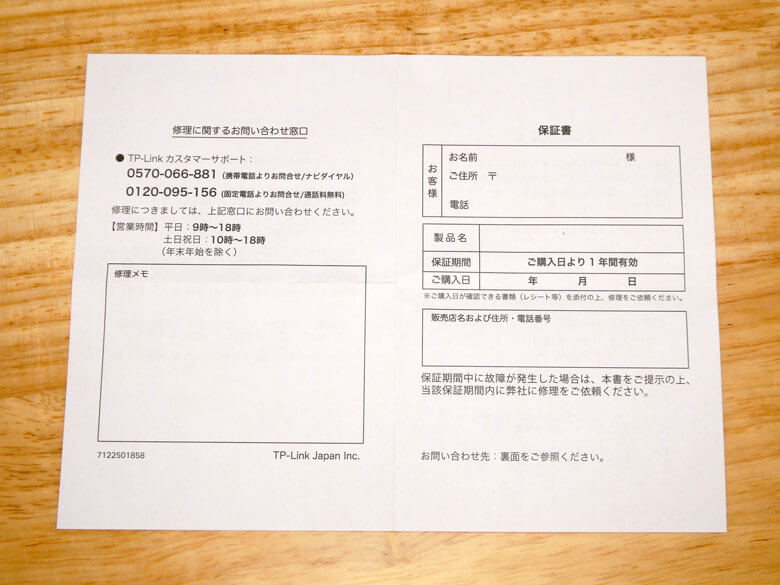 修理に関するお問い合わせ窓口
● TP-Link カスタマーサポート：
0570-066-881（携帯電話よりお問合せ/ナビダイヤル）
0120-095-156（固定電話よりお問合せ/通話料無料）
修理につきましては、上記窓口にお問い合わせください。
【営業時間】平日：9時〜18時
土日祝日：10時〜18時
（年末年始を除く）
修理メモ
7122501858
TP-Link Japan Inc.
保証書
お客様
お名前 様
ご住所 〒
電話
製品名
保証期間 ご購入日より1年間有効
ご購入日 年 月 日
※ご購入日が確認できる書類（レシート等）を添付の上、修理をご依頼ください。
販売店名および住所・電話番号
保証期間中に故障が発生した場合は、本書をご提示の上、
当該保証期間内に弊社に修理をご依頼ください。
お問い合わせ先：裏面をご参照ください。